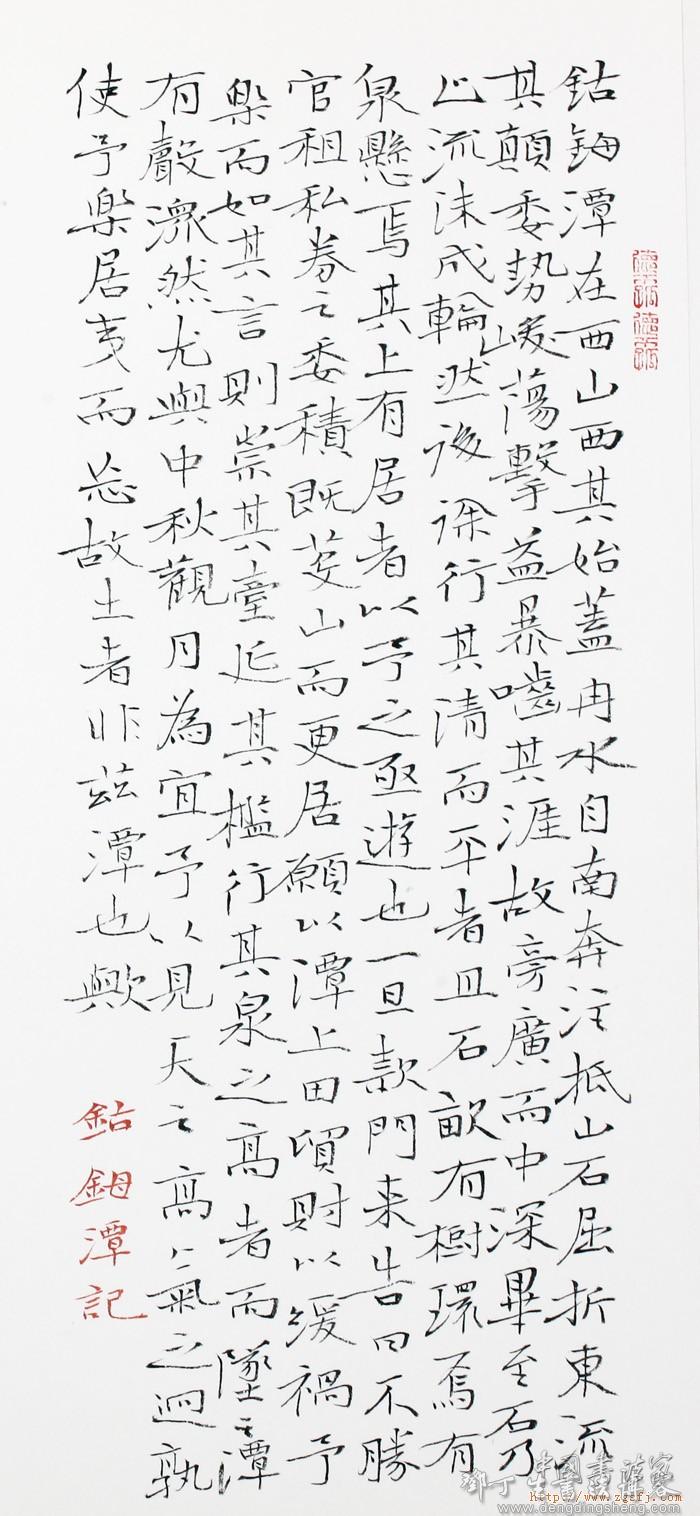 鈷鉧潭在西山西其始蓋冉水自南奔注抵山石屈折東流
其顛委勢峻蕩擊益暴嚙其涯故旁廣而中深畢至石乃
止流沫成輪然後徐行其清而平者且石畝有樹環焉有
泉懸焉其上有居者以予之亟遊也一旦款門来告曰不勝
官租私券之委積既芟山而更居願以潭上田貿財以緩禍予
樂而如其言則崇其臺延其檻行其泉之高者而墜之潭
有聲潀然尤與中秋觀月為宜予以見天之高氣之迥孰
使予樂居夷而忘故土者非茲潭也歟
鈷鉧潭記
Http://www.zgsfj.com
www.dengdingsheng.com